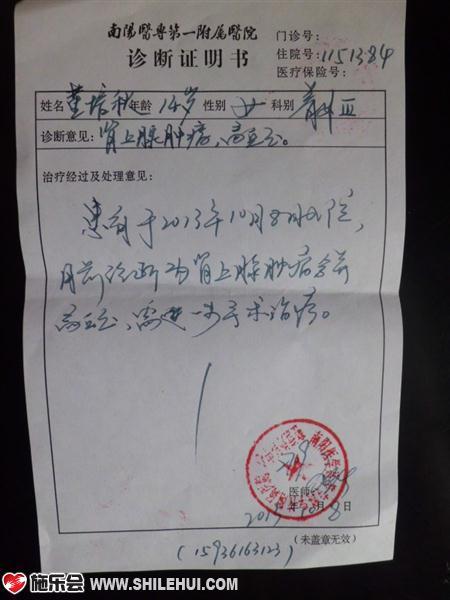 南陽醫專第一附属醫院
诊断证明书
门诊号:
住院号: 1151384
医疗保险号:
姓名 年龄 14岁 性别 女 科别
诊断意见: 肾上腺肿瘤、高血压。
治疗经过及处理意见:
患者于2013年10月8日入院,
目前诊断为肾上腺肿瘤合并
高血压、需进一步手术治疗。
医师:
年 10月8日
(未盖章无效)
(15936163123)
施乐会 WWW.SHILEHUI.COM